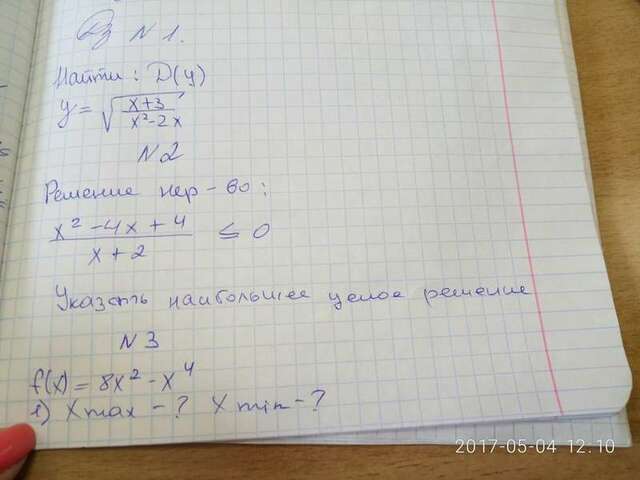 Дз N 1.
Найти: D(y)
y = √(x+3 / x²-2x)
N2
Решение нер-во:
x² -4x + 4 / x + 2 ≤ 0
Указать наибольшее целое решение
N 3
f(x) = 8x² - x⁴
1) Xmax - ? Xmin - ?
2017-05-04 12.10